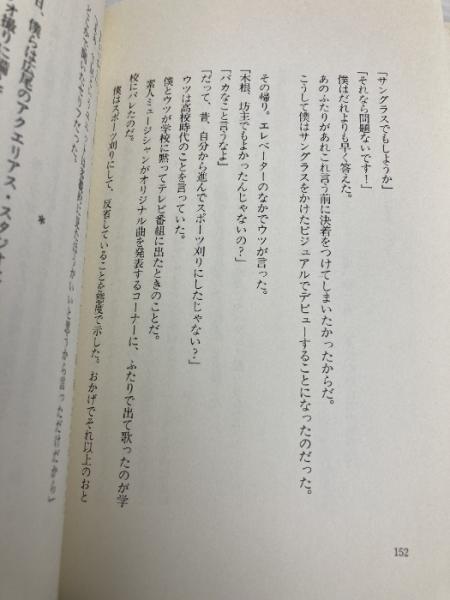 「サングラスでもしようか」
「それなら問題ないです！」
僕はだれよりも早く答えた。
あのふたりがあれこれ言う前に決着をつけてしまいたかったからだ。
こうして僕はサングラスをかけたビジュアルでデビューすることになったのだった。
その帰り。エレベーターのなかでウツが言った。
「木根、坊主でもよかったんじゃないの？」
「バカなこと言うなよ」
「だって、昔、自分から進んでスポーツ刈りにしたじゃない？」
ウツは高校時代のことを言っていた。
僕とウツが学校に黙ってテレビ番組に出たときのことだ。
素人ミュージシャンがオリジナル曲を発表するコーナーに、ふたりで出て歌ったのが学
校にバレたのだ。
僕はスポーツ刈りにして、反省していることを態度で示した。おかげでそれ以上のおと
＊
日、僕らは広尾のアクエリアス・スタジオ
オ撮りに
152